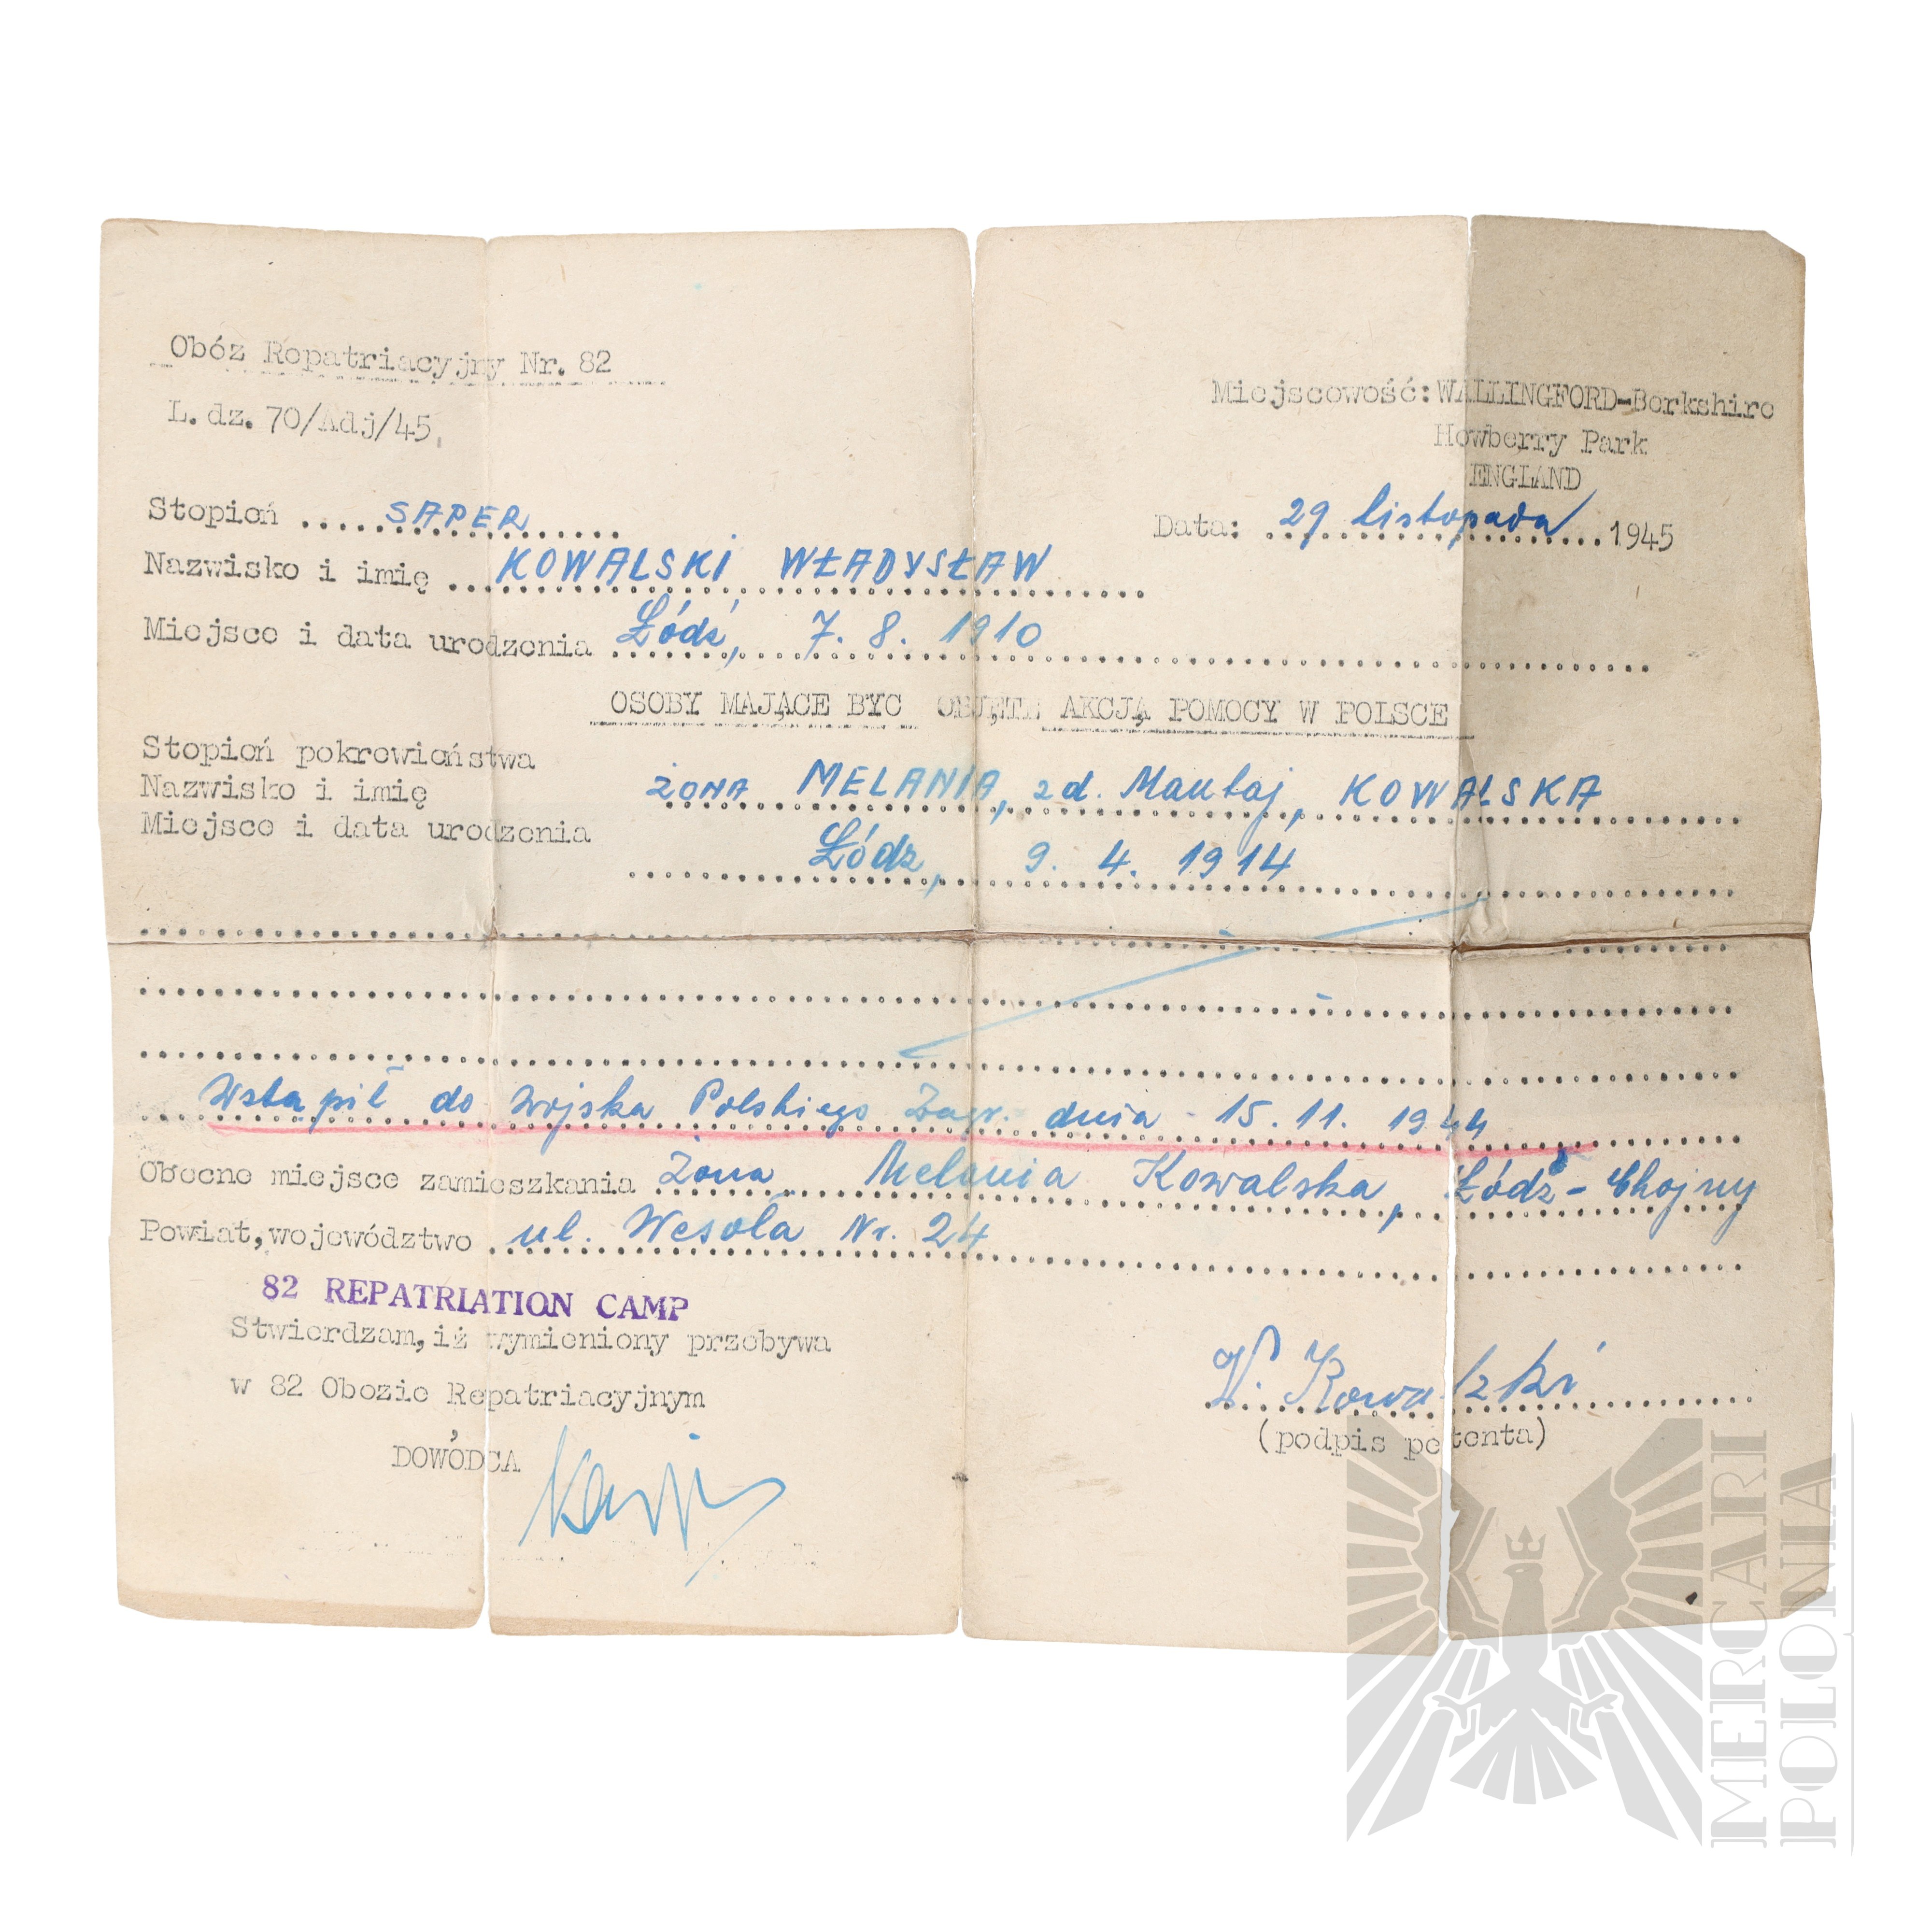 Obóz Repatriacyjny Nr. 82
L. dz. 70/Adj/45.
Miejscowość: WALLINGFORD-Berkshire
Howberry Park
ENGLAND
Stopień ..... SAPER
Data: 29 listopada 1945
Nazwisko i imię ... KOWALSKI WŁADYSŁAW
Miejsce i data urodzenia Łódź, 7. 8. 1910
OSOBY MAJĄCE BYC OBJĘTE AKCJĄ POMOCY W POLSCE
Stopień pokrewieństwa
Nazwisko i imię ŻONA MELANIA, zd. KOWALSKA
Miejsce i data urodzenia
Łódz, 9. 4. 1914
Wstąpił do wojska Polskiego Zagr. dnia 15. 11. 1944
Obecne miejsce zamieszkania Żona Melania Kowalska, Łódź - Chojny
Powiat, województwo ul. Wesoła Nr. 24
82 REPATRIATION CAMP
Stwierdzam, iż wymieniony przebywa
w 82 Obozie Repatriacyjnym
DOWÓDCA
W. Kowalski
(podpis petenta)
MERCARI
POLONIA